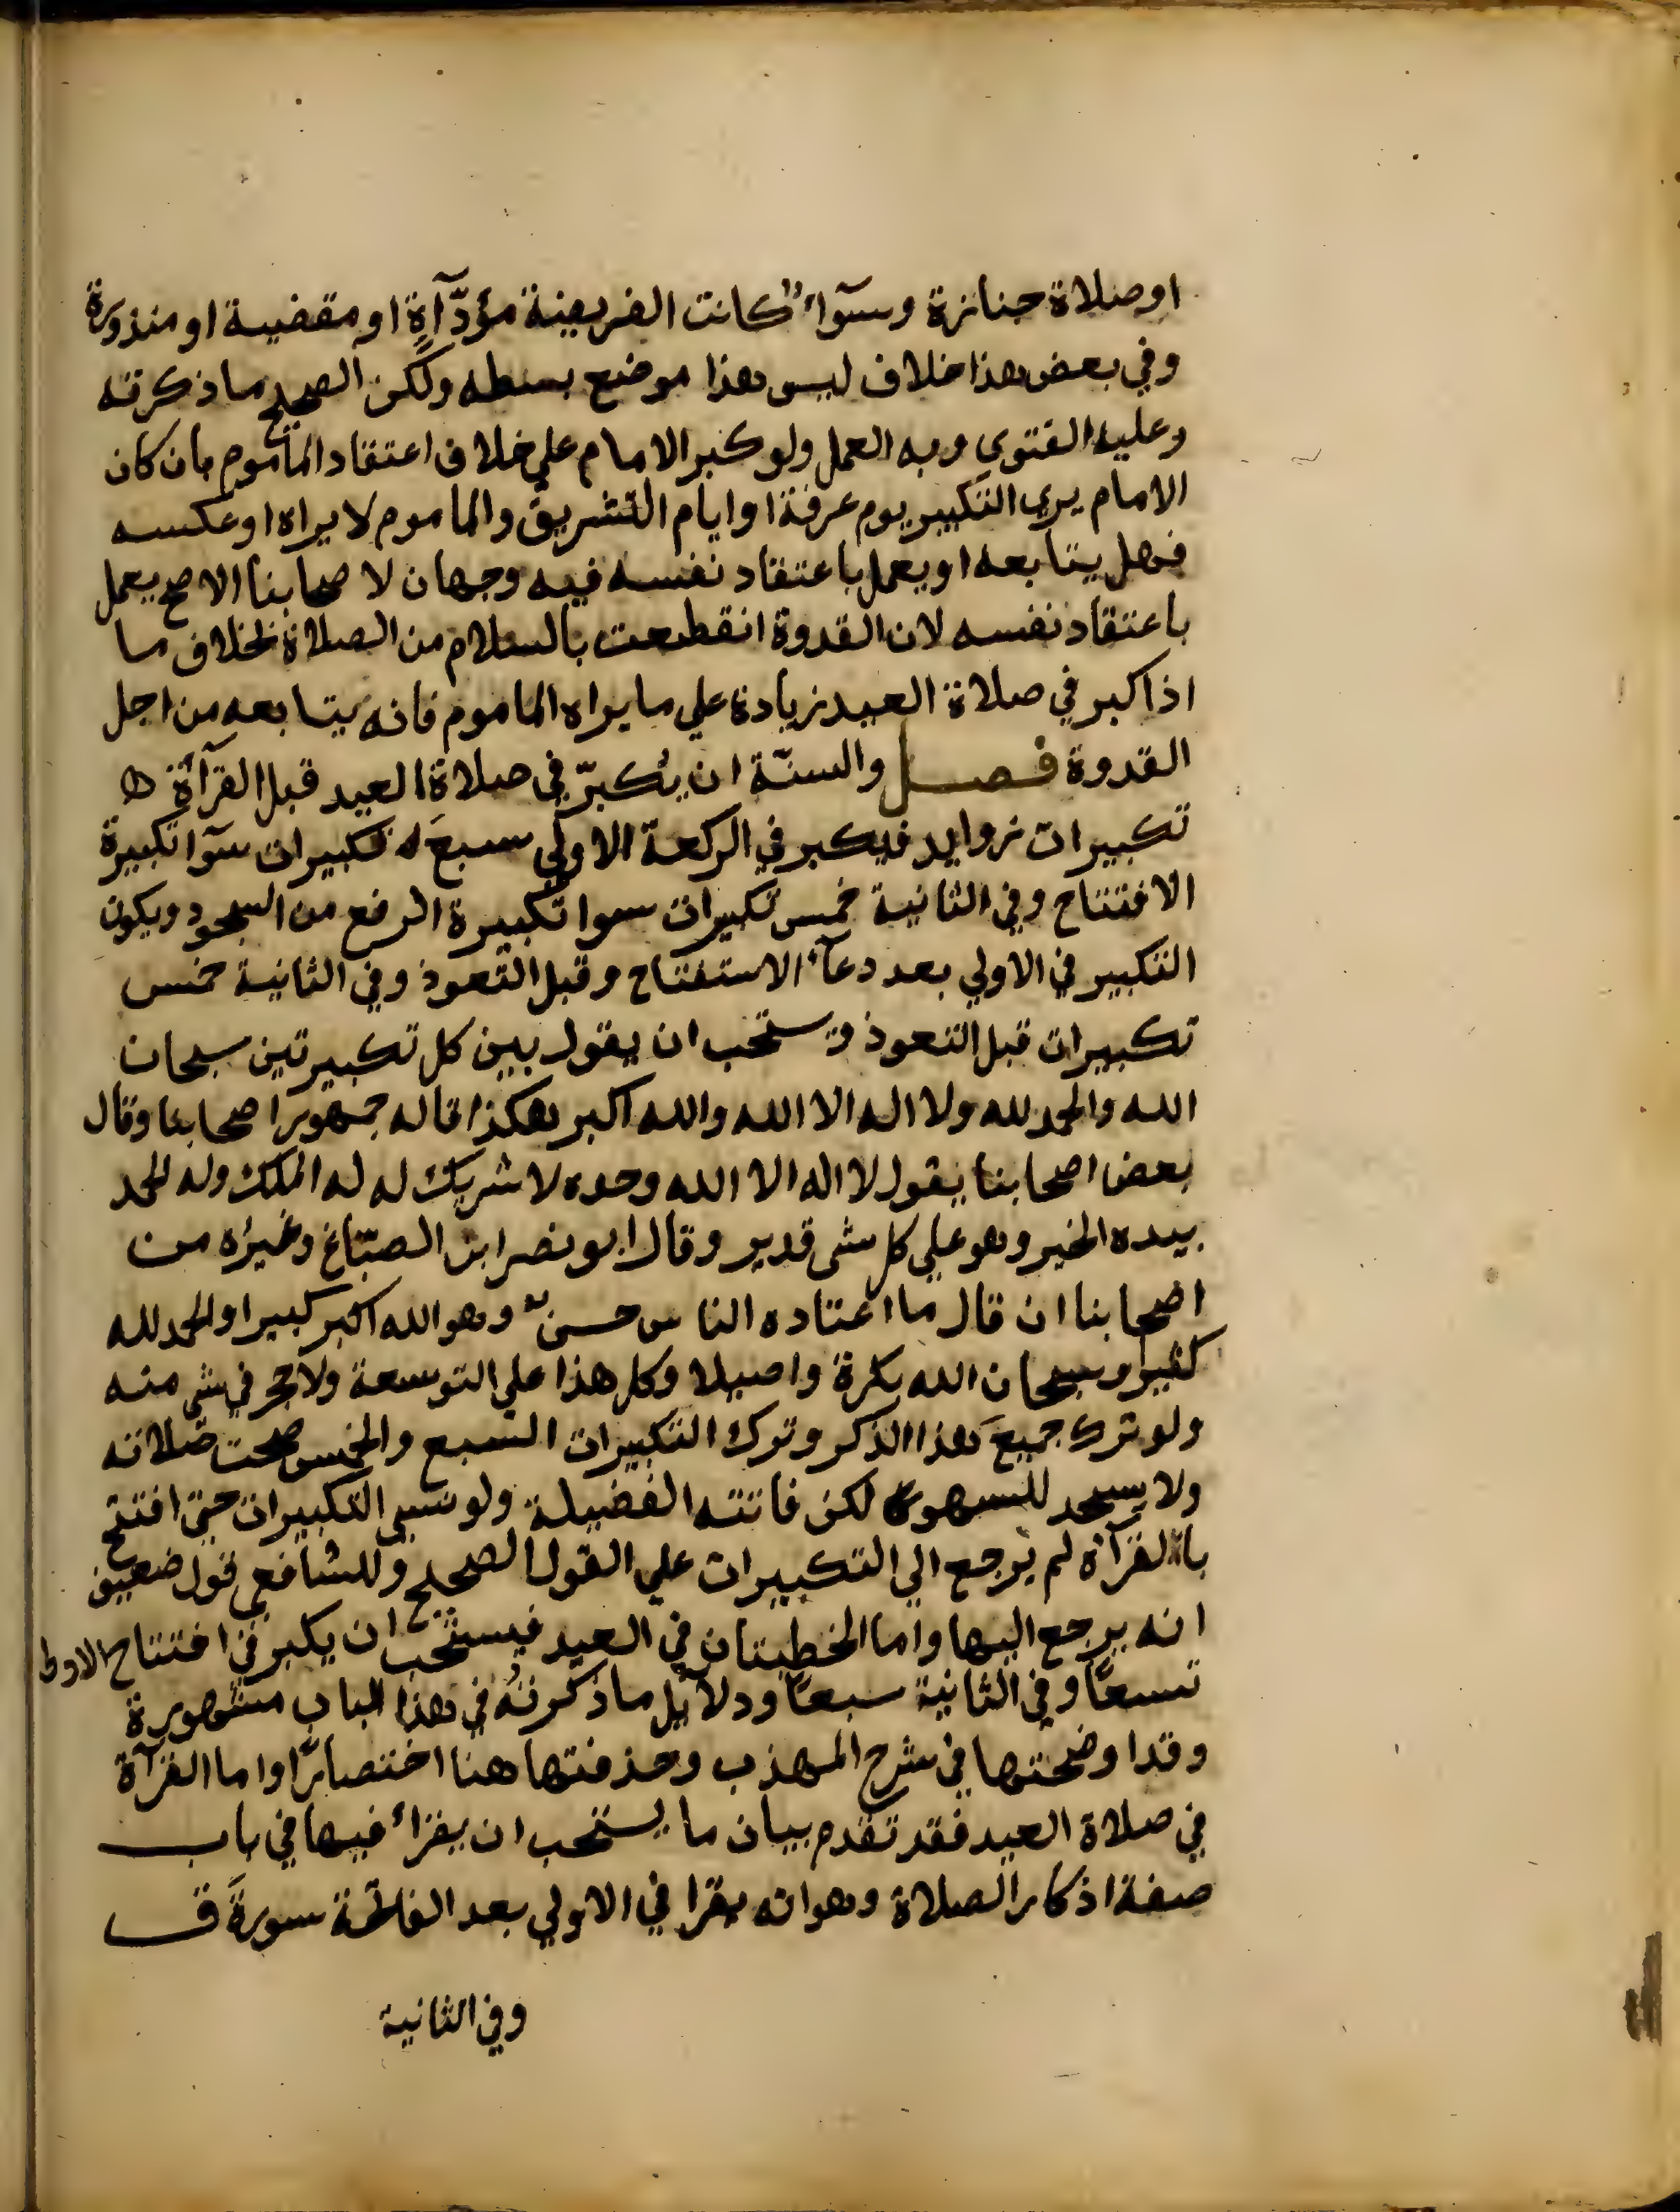 او صلاة جنازة وسوآء كانت الفريضة مؤدّآةٍ او مقضية او منذورة
وفي بعض هذا خلاف ليس هذا موضع بسطه ولكن الصحيح ما ذكرته
وعليه الفتوي وبه العمل ولو كبر الامام علي خلاف اعتقاد الماموم بان كان
الامام يري التكبير يوم عرفة او ايام التشريق والماموم لا يراه او عكسه
فهل يتابعه او يعمل باعتقاد نفسه فيه وجهان لاصحابنا الاصح يعمل
باعتقاد نفسه لان القدوة انقطعت بالسلام من الصلاة بخلاف ما
اذا كبر في صلاة العيد زيادة علي ما يراه الماموم فانه يتابعه من اجل
القدوة فصل والسنّة ان يكبرّ في صلاة العيد قبل القرآة
تكبيرات زوايد فيكبر في الركعة الاولي سبعَ تكبيرات سوآ تكبيرة
الافتتاح وفي الثانية خمس تكبيرات سوا تكبيرة الرفع من السجود ويكون
التكبير في الاولي بعد دعآء الاستفتاح وقبل التعوذ وفي الثانية خمس
تكبيرات قبل التعوذ وتستحب ان يقول بين كل تكبيرتين سبحان
الله والحمد لله ولا اله الا الله والله اكبر هكذا قاله جمهور اصحابنا وقال
بعض اصحابنا يقول لا اله الا الله وحده لا شريك له له الملك وله الحمد
بيده الخير وهو علي كل شي قدير وقال ابو نصر ابن الصبّاغ وغيره من
اصحابنا ان قال ما اعتاده الناس حسنٌ وهو الله اكبر كبيرا والحمد لله
كثيرا وسبحان الله بكرة واصيلا وكل هذا علي التوسعة ولا حجر في شي منه
ولو ترك جميعَ هذا الذكر وترك التكبيرات السبع والخمس صحت صلاته
ولا يسجد للسهو لكن فاتته الفضيلة ولو نسي التكبيرات حتي افتتح
بالقرآة لم يرجع الي التكبيرات علي القول الصحيح وللشافعي قول ضعيف
انه يرجع اليها واما الخطبتان في العيد فيستحب ان يكبر في افتتاح الاولي
تسعًا وفي الثانية سبعًا ودلآيل ما ذكرتُه في هذا الباب مشهورة
وقد اوضحتها في شرح المهذب وحذفتها هنا اختصارًا واما القرآة
في صلاة العيد فقد تقدم بيان ما يستحب ان يقرأ فيها في باب
صفة اذكار الصلاة وهو انه يقرا في الاولي بعد الفاتحة سورةَ ق
وفي الثانية